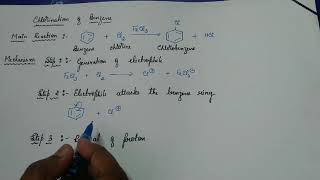 Chlorination of Benzene
Main Reaction :- + Cl₂ FeCl₃ → Cl + HCl
Benzene chlorine Chlorobenzene
Mechanism Step 1 :- Generation of electrophile
FeCl₃ + Cl₂ → Cl⊕ + FeCl₄⊖
Step 2 :- Electrophile attacks the benzene ring
+ Cl⊕
Step 3 :- of proton